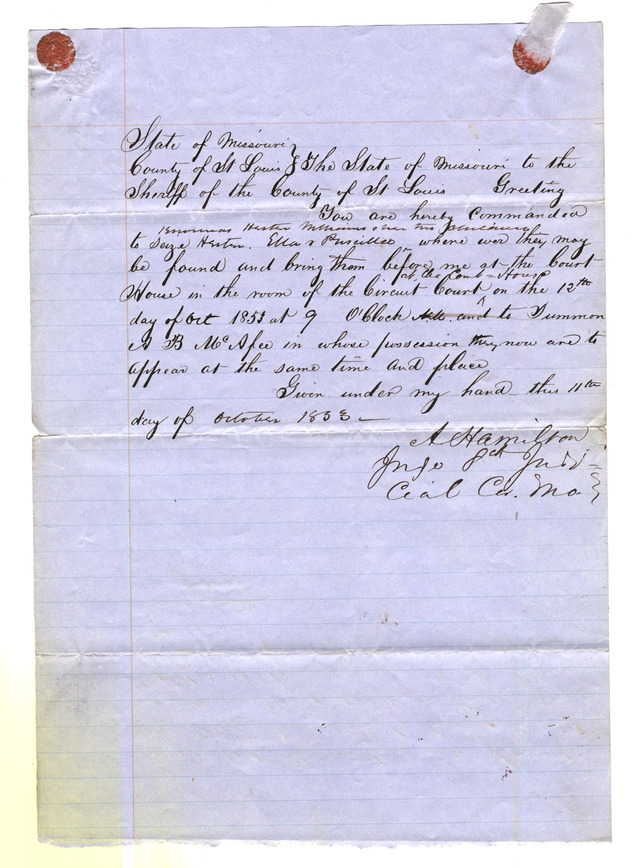 State of Missouri }
County of St Louis } The State of Missouri to the
Sheriff of the County of St Louis Greeting
You are hereby Commanded
Hester Williams & her two
to Seize Hester. Ella & Priscilla where ever they may
be found and bring them before me at the Court
at the Court House
House in the room of the Circuit Court on the 12th
day of Oct 1853 at 9 O'Clock and to Summon
A B McAfee in whose possession they now are to
appear at the same time and place
Given under my hand this 11th
day of October 1853
A. Hamilton
Judge 8th Judi
cial Co. Mo.